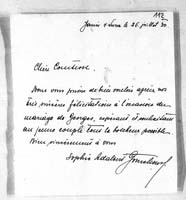 112
le 26 juillet 30
Chère Comtesse,
Nous vous prions de bien vouloir agréer nos
très sincères félicitations à l'occasion du
mariage de Georges, espérant et souhaitant
au jeune couple tout le bonheur possible.
Bien sincèrement à vous
Sophie